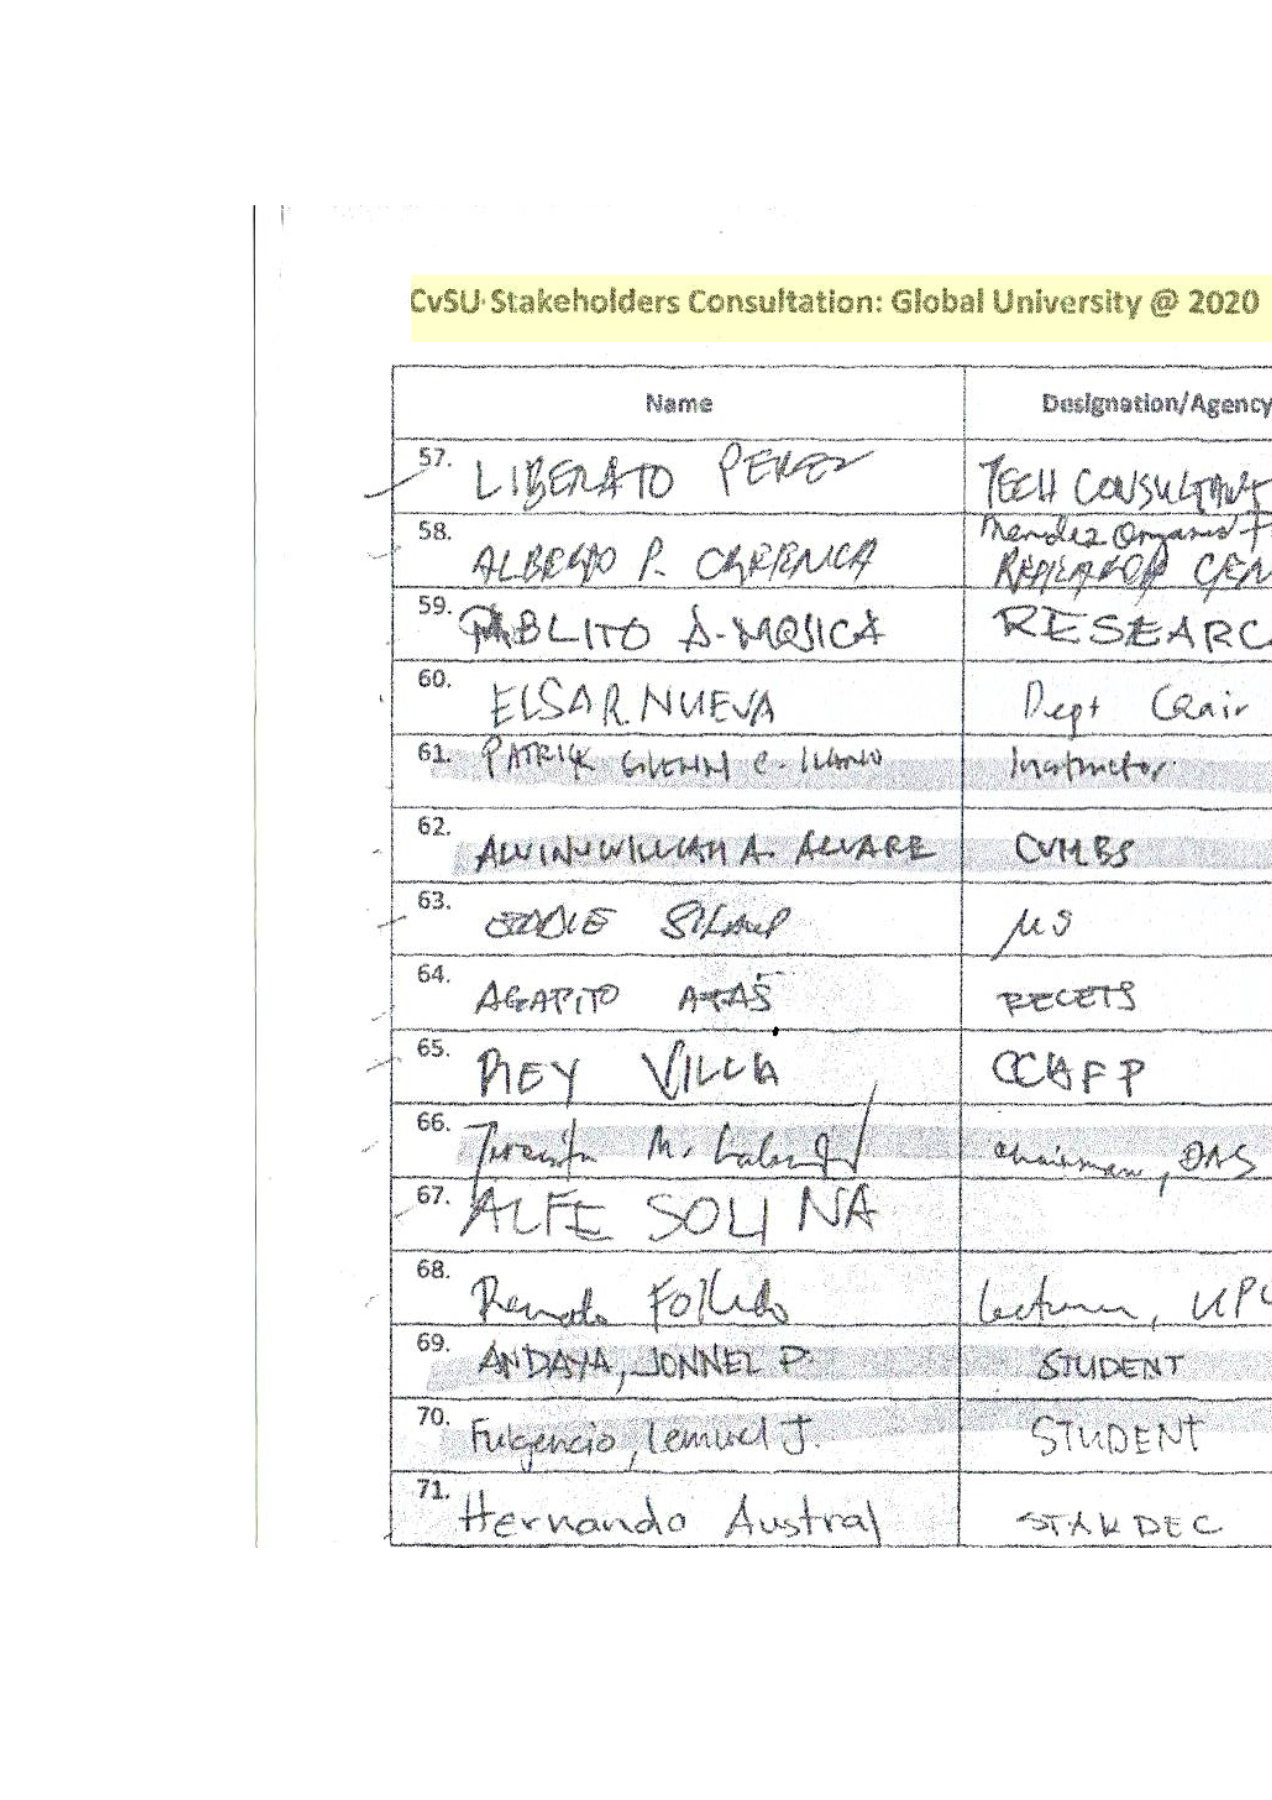 CvSU Stakeholders Consultation: Global University @ 2020
Name Designation/Agency
57. LIBERATO PEREZ TECH CONSULTANT
58. Mendez Organic
P.
59. PABLITO A. MOJICA RESEARC
60. ELSA R. NUEVA Dept Chair
61. PATRICK GLENN C. ILANO Instructor
62. ALVIN WILLIAM A. ALVARE CVMBS
63. EDDIE
64. AGAPITO RECETS
65. REY VILLA CCAFP
66. M. Chairman, DAS
67. ALFE SOLINA
68. Renato Follado Lecturer, UPL
69. ANDAYA, JONNEL P. STUDENT
70. Fulgencio, Lemuel J. STUDENT
71. Hernando Austral STAKDEC